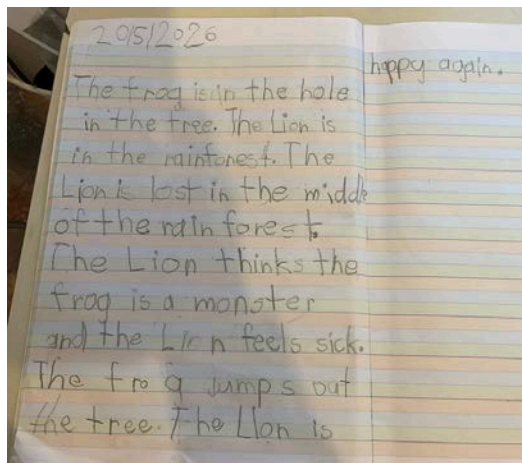 20/5/2026
The frog is in the hole
in the tree. The Lion is
in the rainforest. The
Lion is lost in the middle
of the rain forest.
The Lion thinks the
frog is a monster
and the Lion feels sick.
The frog Jumps out
the tree. The Lion is
happy again.